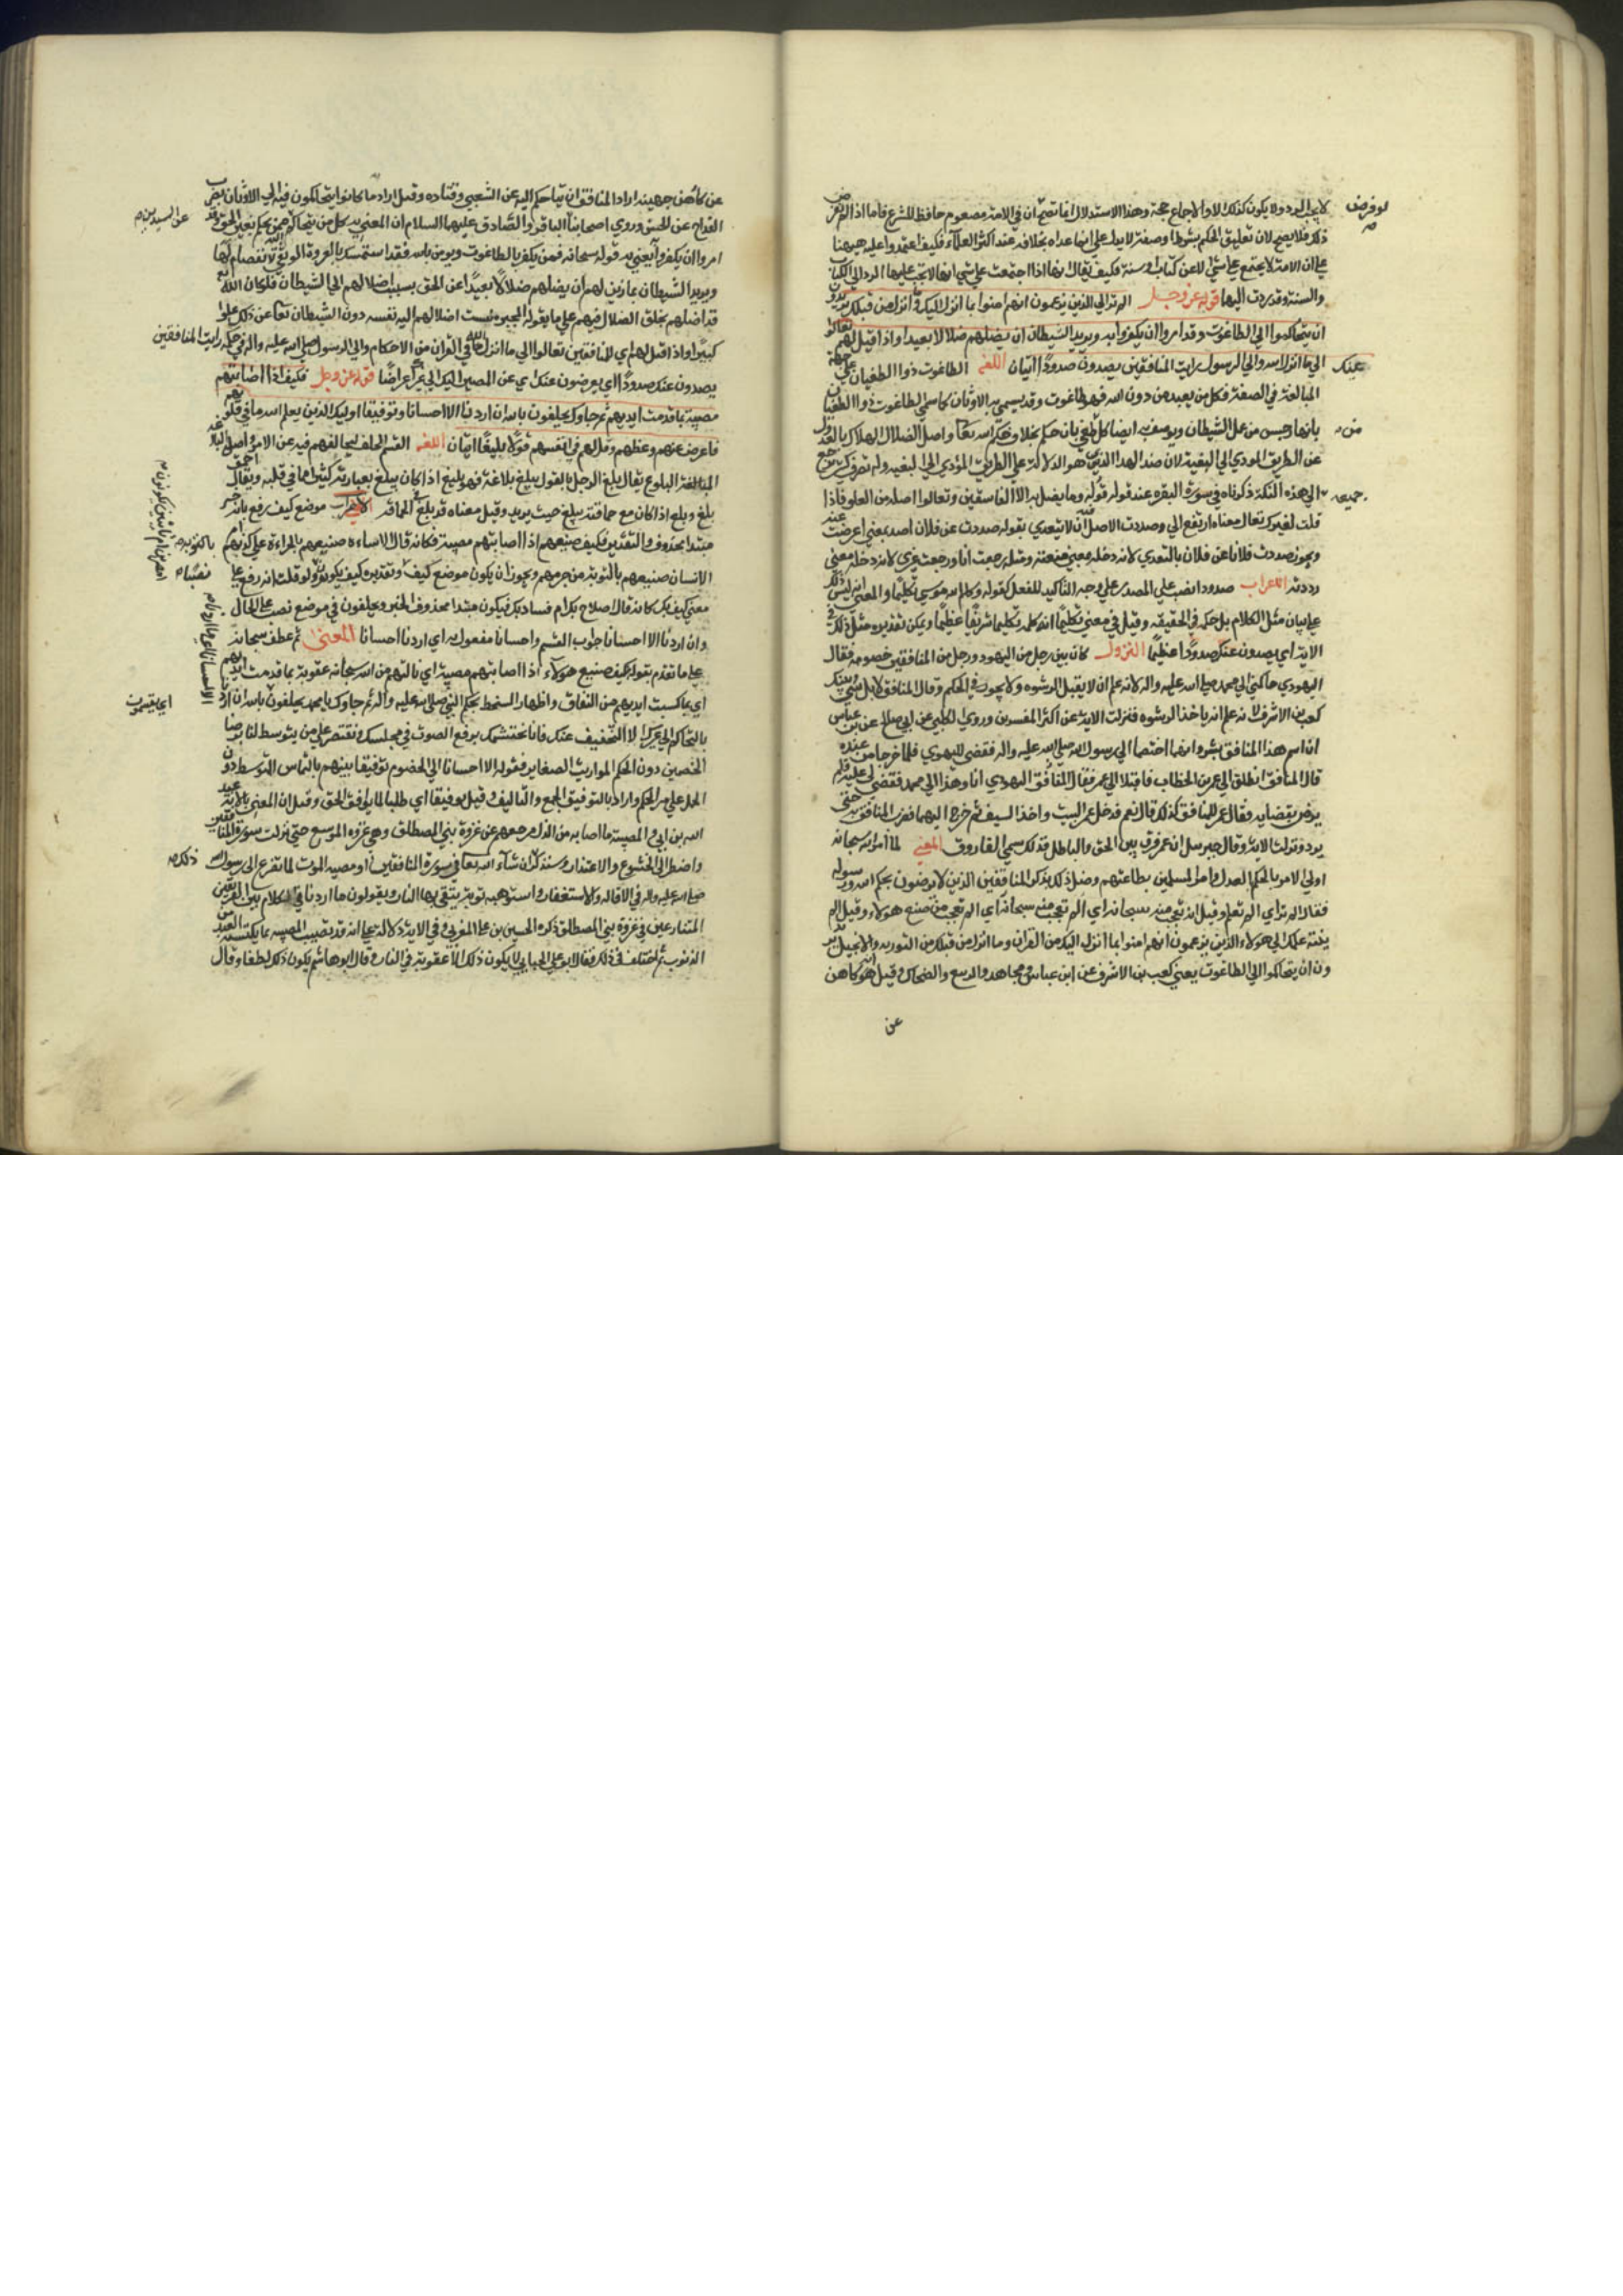 لا يجب الرد ولا يكون كذلك الا والاجماع حجة وهذا الاستدلال انما تصح ان في الامة معصوم حافظ للشرع فاما اذا لم نفرض
لو فرض
ذلك فلا يصح لان تعليق الحكم بشرط او صفة لا يدل على ان ما عداه بخلافه عند اكثر العلماء فكيف اعتمدوا عليه ههنا
على ان الامة لا يجتمع على شي الا عن كتاب او سنة فكيف يقال انها اذا اجتمعت على شي انها لا تجب عليها الرد الى الكتاب
والسنة وقد ردت اليها قوله عز وجل الم تر الى الذين يزعمون انهم امنوا بما انزل اليك وما انزل من قبلك يريدون
ان يتحاكموا الى الطاغوت وقد امروا ان يكفروا به ويريد الشيطان ان يضلهم ضلالا بعيدا واذا قيل لهم تعالوا
الى ما انزل الله والى الرسول رايت المنافقين يصدون عنك صدودا ايتان اللغة الطاغوت ذو الطغيان على جهة
المبالغة في الصفة فكل من يعبد من دون الله فهو طاغوت وقد يسمى به الاوثان كما سمى الطاغوت ذوا الطغيان
بانها رجس من عمل الشيطان ويوصف به ايضا كل من طغى بان حكم بخلاف حكم الله تعالى واصل الضلال الهلاك بالعدول
عن الطريق المودي الى البغية لان ضد الهدا الذي هو الدلالة على الطريق المؤدي الى البغية وله تصرف كثير يرجع
جميعه الى هذه النكتة ذكرناه في سورة البقره عند قوله قوله وما يضل به الا الفاسقين وتعالوا اصله من العلو فاذا
قلت لغيرك تعال معناه ارتفع الي وصددت الاصل فيه ان لا يتعدى تقول صددت عن فلان اصد بمعنى اعرضت عنه
ويجوز صددت فلانا عن فلان بالتعدي لانه دخله معنى منعته ومثله رجعت انا ورجعت غيري لانه دخله معنى
رددته الاعراب صدودا نصب على المصدر على وجه التاكيد للفعل كقوله وكلم الله موسى تكليما والمعنى انه ليس ذلك
على بيان مثل الكلام بل كلمه في الحقيقة وقيل في معنى تكليما انه كلمه تكليما شريفا عظيما ويمكن تقديره مثل ذلك في
الاية اي يصدون عنك صدودا عظيما النزول كان بين رجل من اليهود ورجل من المنافقين خصومة فقال
اليهودي حاكمني الى محمد صلى الله عليه واله لانه علم انه لا يقبل الرشوه ولا يجور في الحكم وقال المنافق لا بل بيني وبينك
كعب بن الاشرف لانه علم انه ياخذ الرشوه فنزلت الاية عن اكثر المفسرين وروى الكلبي عن ابي صالح عن ابن عباس
ان اسم هذا المنافق بشر وانهما اختصما الى رسول الله صلى الله عليه واله فقضى لليهودي فلما خرجا من عنده
قال المنافق انطلق الى عمر بن الخطاب فاقبلا الى عمر فقال المنافق اليهودي انا وهذا الى محمد فقضى لي عليه فلم
يرض بقضايه فقال عمر للمنافق كذلك قال نعم فدخل عمر البيت واخذ السيف ثم خرج اليهما فضرب المنافق به حتى
برد ونزلت الاية وقال جبرييل ان عمر فرق بين الحق والباطل فذلك سمي الفاروق المعنى لما امر الله سبحانه
اولي الامر بالحكم العدل وامر المسلمين بطاعتهم وصل ذلك بذكر المنافقين الذين لا يرضون بحكم الله ورسوله
فقال الم تر اي الم تعلم وقيل انه تعجب منه سبحانه اي الم تعجب من صنع هولاء وقيل الم
ينته علمك الى هولاء الذين يزعمون انهم امنوا بما انزل اليك من القران وما انزل من قبلك من التوريه والانجيل يريد
ون ان يتحاكموا الى الطاغوت يعني كعب بن الاشرف عن ابن عباس ومجاهد والربيع والضحاك وقيل انه هو كاهن
عن
عن كاهن جهينه اراد المنافق ان يتحاكم اليه عن الشعبي وقتاده وقيل اراد ما كانوا يتحاكمون فيه الى الاوثان بضرب
القداح عن الحسن وروى اصحابنا عن السيدين الباقر والصادق عليهما السلام ان المعني به كل من يتحاكم الى من يحكم بغير الحق وقد
امروا ان يكفروا به يعني به قوله سبحانه فمن يكفر بالطاغوت ويومن بالله فقد استمسك بالعروة الوثقى لا انفصام لها
ويريد الشيطان بما زين لهم ان يضلهم ضلالا بعيدا عن الحق بسبب اضلالهم الى الشيطان فلو كان الله
قد اضلهم بخلق الضلال فيهم على ما يقوله المجبرة لنسب اضلالهم اليه نفسه دون الشيطان تعالى عن ذلك علوا
كبيرا واذا قيل لهم اي للمنافقين تعالوا الى ما انزل الله في القران من الاحكام والى الرسول صلى الله عليه واله في حكمه رايت المنافقين
يصدون عنك صدودا اي يعرضون عنك اي عن المصير اليك الى غيرك اعراضا قوله عز وجل فكيف اذا اصابتهم
مصيبة بما قدمت ايديهم ثم جاوك يحلفون بالله ان اردنا الا احسانا وتوفيقا اوليك الذين يعلم الله ما في قلوبهم
فاعرض عنهم وعظهم وقل لهم في انفسهم قولا بليغا ايتان اللغة القسم الحلف
المبالغة البلوغ يقال بلغ الرجل بالقول يبلغ بلاغة فهو بليغ اذا كان يبلغ بعبارته كثيرا مما في قلبه ويقال احمق
بلغ وبلغ اذا كان مع حماقته يبلغ حيث يريد وقيل معناه قد بلغ في الحماقة الاعراب موضع كيف رفع بانه خبر
مبتدا محذوف والتقدير فكيف صنيعهم اذا اصابتهم مصيبة فكانه قال الاساءة صنيعهم بالجراءة على كذبهم ام
الاحسان صنيعهم بالتوبة من جرمهم ويجوز ان يكون موضع كيف نصبا وتقديره كيف يكونون ولو قلت انه رفع على
معنى كيف بك كانه قال اصلاح بك ام فساد بك فيكون مبتدا محذوف الخبر ويحلفون في موضع نصب على الحال
وان اردنا الا احسانا جواب القسم واحسانا مفعول به اي اردنا احسانا المعنى ثم عطف سبحانه
على ما تقدم بقوله فكيف صنيع هولاء اذا اصابتهم مصيبة اي نالتهم من الله سبحانه عقوبة بما قدمت ايديهم
اي بما كسبت ايديهم من النفاق واظهار السخط بحكم النبي صلى الله عليه واله ثم جاوك يا محمد يحلفون بالله ان اردنا
اي يقسمون
بالتحاكم الى غيرك الا التخفيف عنك فانا نحتشمك برفع الصوت في مجلسك ونقتصر على من يتوسط لنا برضا
الخصمين دون الحكم فقوله الا احسانا الى الخصوم توفيقا بينهم بالتماس التوسط دون
الحمل على مر الحكم واراد بالتوفيق الجمع والتاليف وقيل توفيقا اي طلبا لما يوافق الحق وقيل ان المعني بالاية عبد
الله بن ابي والمصيبة ما اصابه من الذل مرجعهم من غزوة بني المصطلق وهي غزوه المريسيع حتى نزلت سورة المنافقين
واضطر الى الخشوع والاعتذار وسنذكر ذلك ان شاء الله تعالى في سورة المنافقين او مصيبه الموت لما تضرع الى رسول الله
صلى الله عليه واله في الاقاله والاستغفار واستوهبه ثوبه ليتقي بها النار ويقولون ما اردنا في الكلام بين الفريقين
المتنازعين في غزوة بني المصطلق ذكره الحسين بن علي المغربي وفي الاية دلالة على انه قد تصيب المصيبه بما يكتسبه العبد من
الذنوب ثم اختلف في ذلك فقال ابو علي الجبايي لا يكون ذلك الا عقوبة في النار وقال ابو هاشم يكون ذلك لطفا وقال